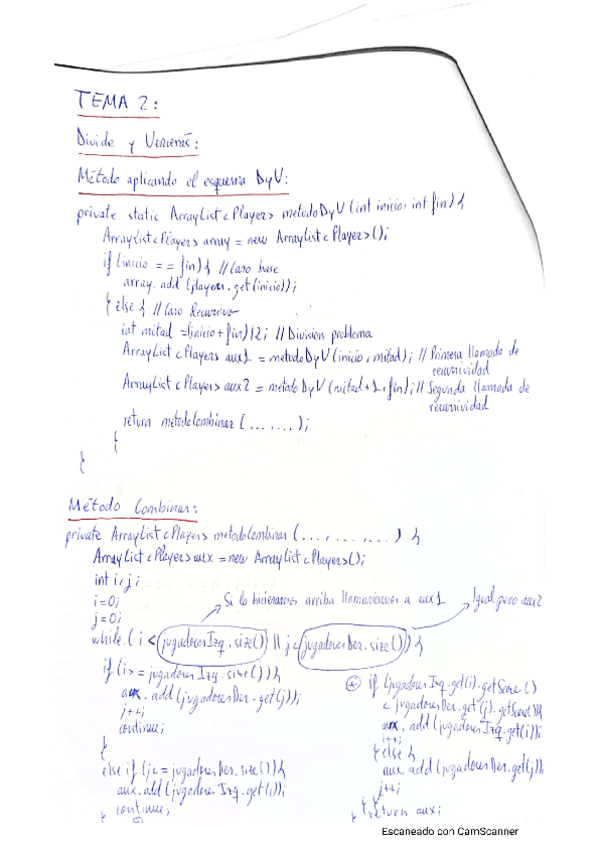 TEMA 2:
Divide y Vencerás:
Método aplicando el esquema DyV:
private static ArrayList<Player> metodoDyV (int inicio, int fin) {
ArrayList<Player> array = new ArrayList<Player>();
if (inicio == fin) { // Caso base
array.add (players.get(inicio));
} else { // Caso Recursivo
int mitad = (inicio + fin)/2; // División problema
ArrayList<Player> aux1 = metodoDyV (inicio, mitad); // Primera llamada de
recursividad
ArrayList<Player> aux2 = metodoDyV (mitad+1, fin); // Segunda llamada de
recursividad
return metodoCombinar (.......);
}
}
Método Combinar:
private ArrayList<Player> metodoCombinar (...., ...., ....) {
ArrayList<Player> aux = new ArrayList<Player>();
int i, j;
i=0;
j=0;
Si lo hicieramos arriba llamaríamos a aux1
Igual pero aux2
while (i < jugadoresIzq.size() || j < jugadoresDer.size()) {
if (i >= jugadoresIzq.size()) {
aux.add (jugadoresDer.get(j));
j++;
continue;
}
else if (j >= jugadoresDer.size()) {
aux.add (jugadoresIzq.get(i));
continue;
}
if (jugadoresIzq.get(i).getScore()
< jugadoresDer.get(j).getScore()) {
aux.add (jugadoresIzq.get(i));
i++;
} else {
aux.add (jugadoresDer.get(j));
j++;
} } return aux;
Escaneado con CamScanner